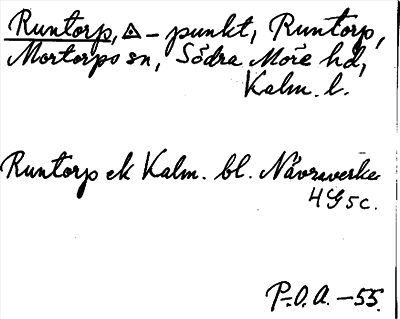 Runtorp, △- punkt, Runtorp,
Mortorps sn, Södra Möre hd,
Kalm. l.
Runtorp ek Kalm. bl. Nävraverke
4G5c.
P.O.A. -55.